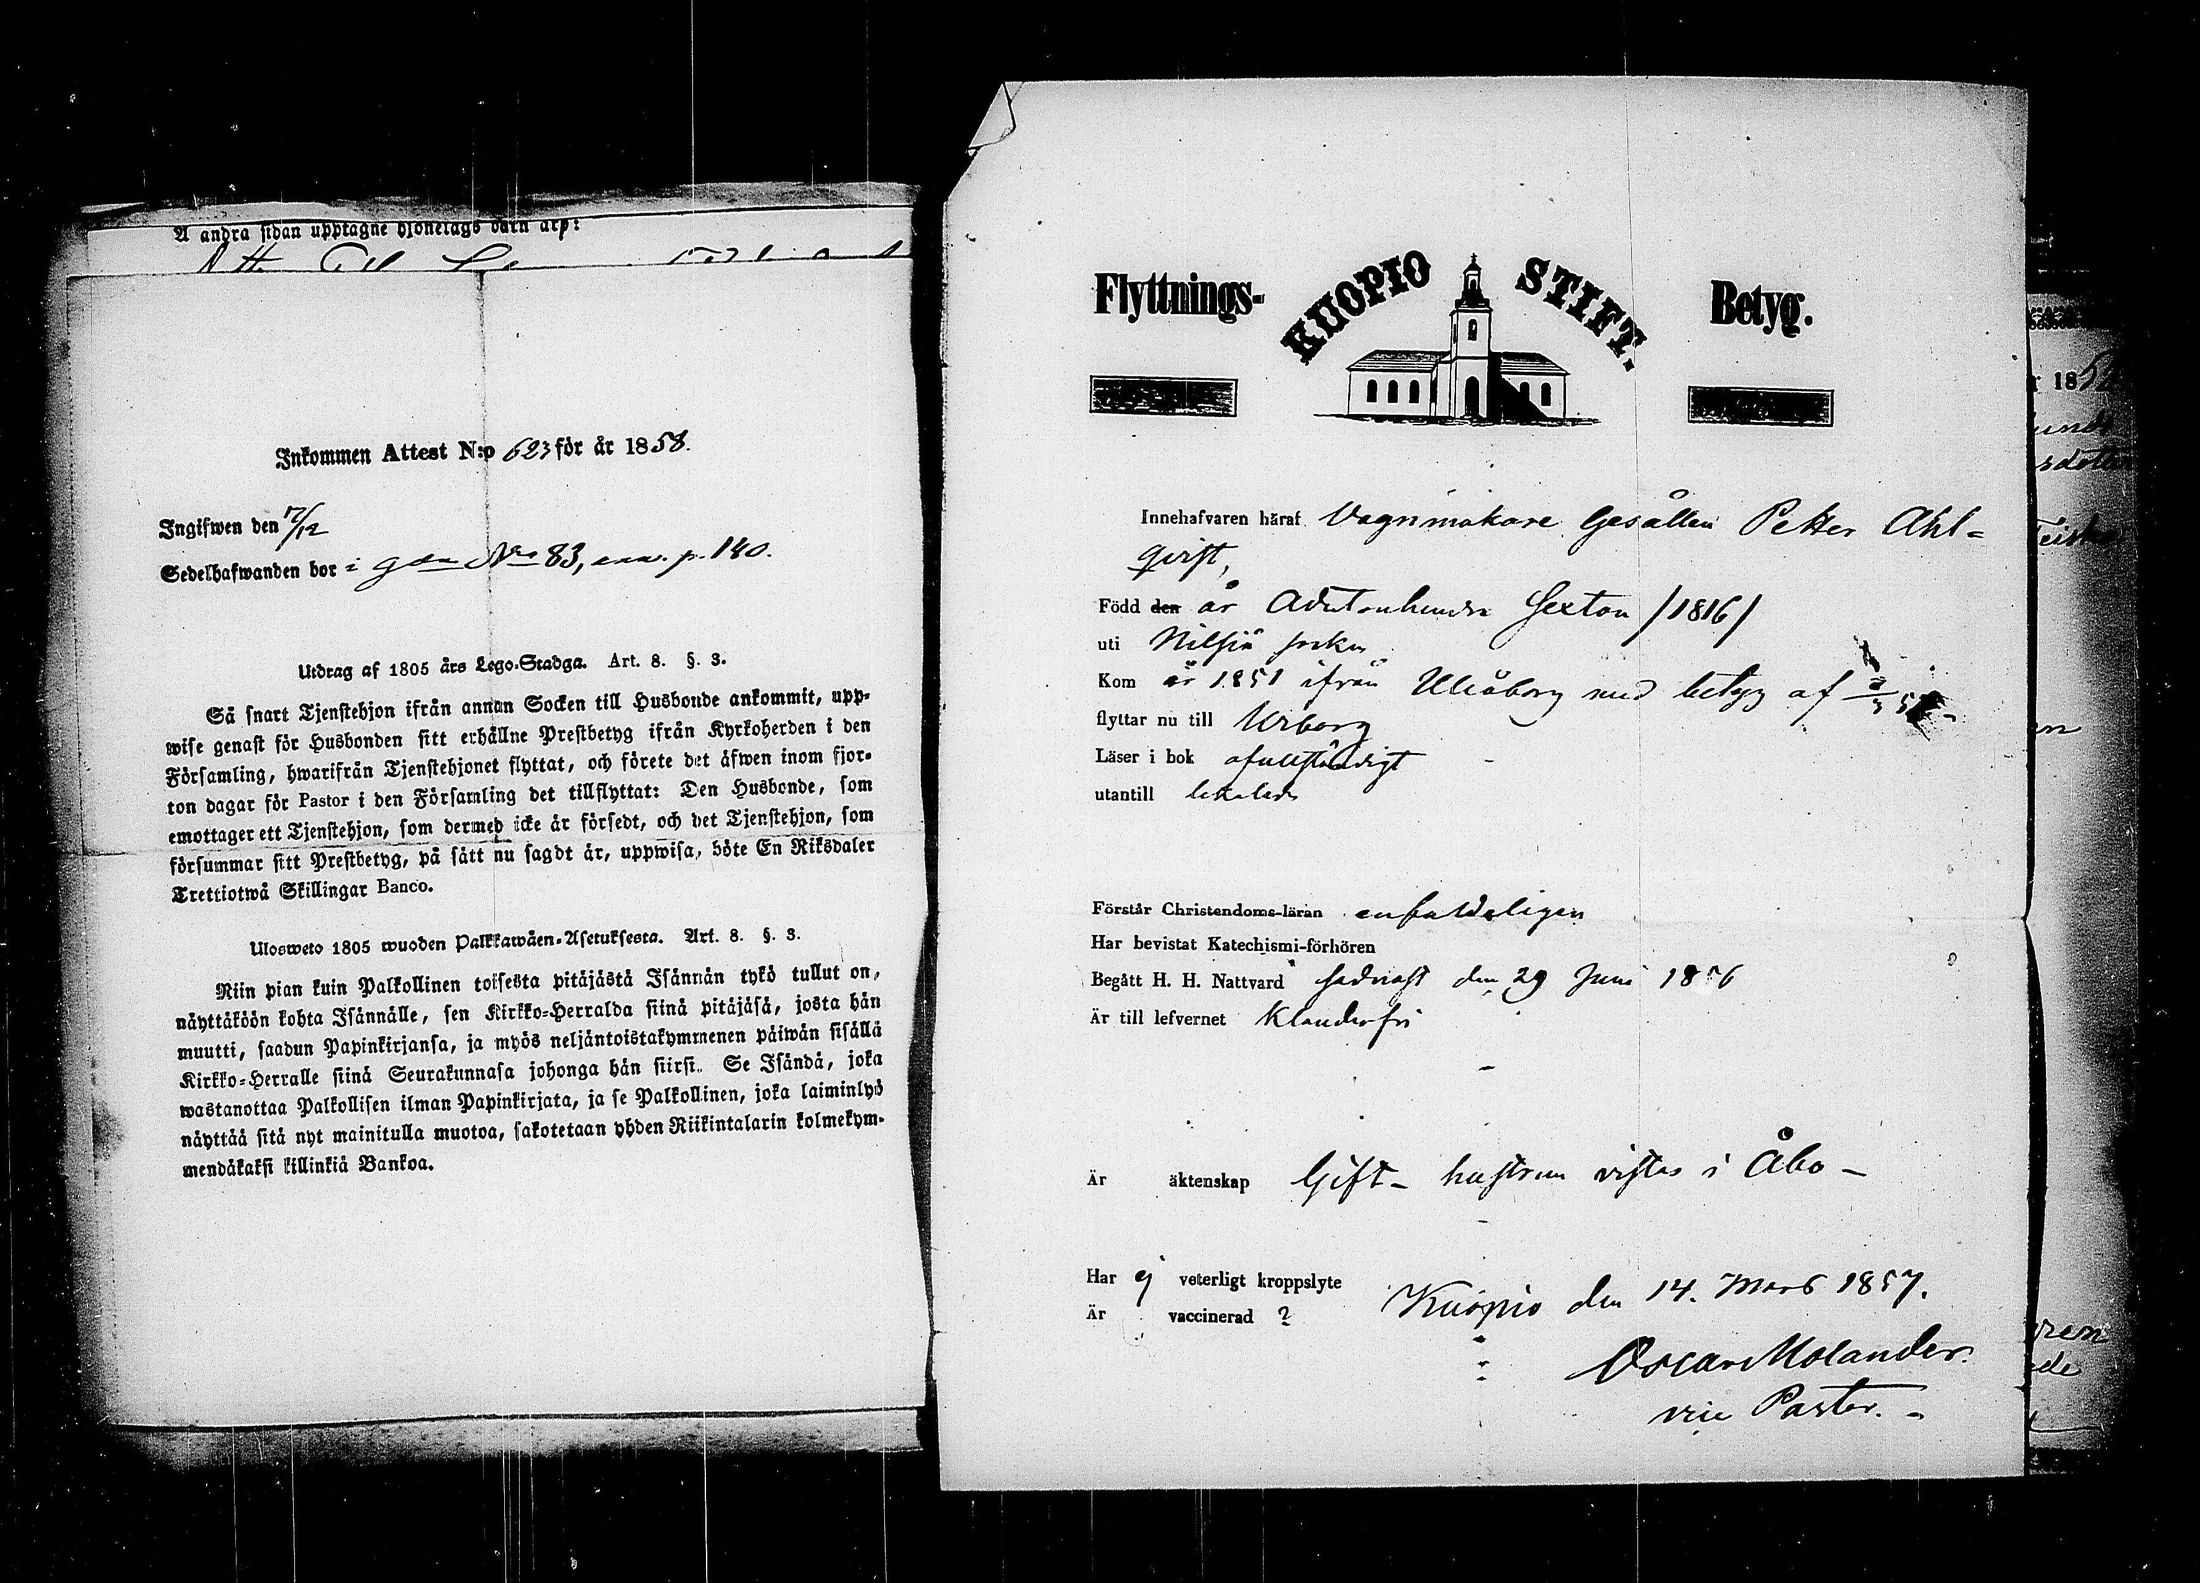 Å andra sidan upptagne hjonelags barn äro:
Inkommen Attest N:o 623 för år 1858.
Ingifwen den 7/12
Sedelhafwanden bor i gdn Nro 83, p. 140.
Utdrag af 1805 års Lego-Stadga. Art. 8. §. 3.
Så snart Tjenstehjon ifrån annan Socken till Husbonde ankommit, upp-
wise genast för Husbonden sitt erhållne Prestbetyg ifrån Kyrkoherden i den
Församling, hwarifrån Tjenstehjonet flyttat, och förete det äfwen inom fjor-
ton dagar för Pastor i den Församling det tillflyttat: Den Husbonde, som
emottager ett Tjenstehjon, som dermed icke är försedt, och det Tjenstehjon, som
försummar sitt Prestbetyg, på sätt nu sagdt är, uppwisa, böte En Riksdaler
Trettiotwå Skillingar Banco.
Ulosweto 1805 wuoden Palkkawäen-Asetuksesta. Art. 8. §. 3.
Niin pian kuin Palkollinen toisesta pitäjästä Isännän tykö tullut on,
näyttäköön kohta Isännälle, sen Kirkko-Herralda siinä pitäjäsä, josta hän
muutti, saadun Papinkirjansa, ja myös neljäntoistakymmenen päiwän sisällä
Kirkko-Herralle siinä Seurakunnasa johonga hän siirsi. Se Isändä, joka
wastanottaa Palkollisen ilman Papinkirjata, ja se Palkollinen, joka laiminlyö
näyttää sitä nyt mainitulla muotoa, sakotetaan yhden Riikintalarin kolmekym-
mendäkaksi killinkiä Bankoa.
Flyttnings- KUOPIO STIFT. Betyg.
Innehafvaren häraf Vagnmakare Gesällen Petter Ahl-
qvist,
Född den år Adertonhundra Sexton /1816/
uti Nilsiä socken
Kom år 1851 ifrån Uleåborg med betyg af
flyttar nu till Wiborg
Läser i bok ofullständigt
utantill
Förstår Christendoms-läran enfaldeligen
Har bevistat Katechismi-förhören
Begått H. H. Nattvard sednast den 29 Juni 1856
Är till lefvernet Klanderfri
Är äktenskap Gift - hustrun vistas i Åbo -
Har ej veterligt kroppslyte
Är vaccinerad ?
Kuopio den 14. Mars 1857.
Oscar Molander.
vice Pastor. -
18